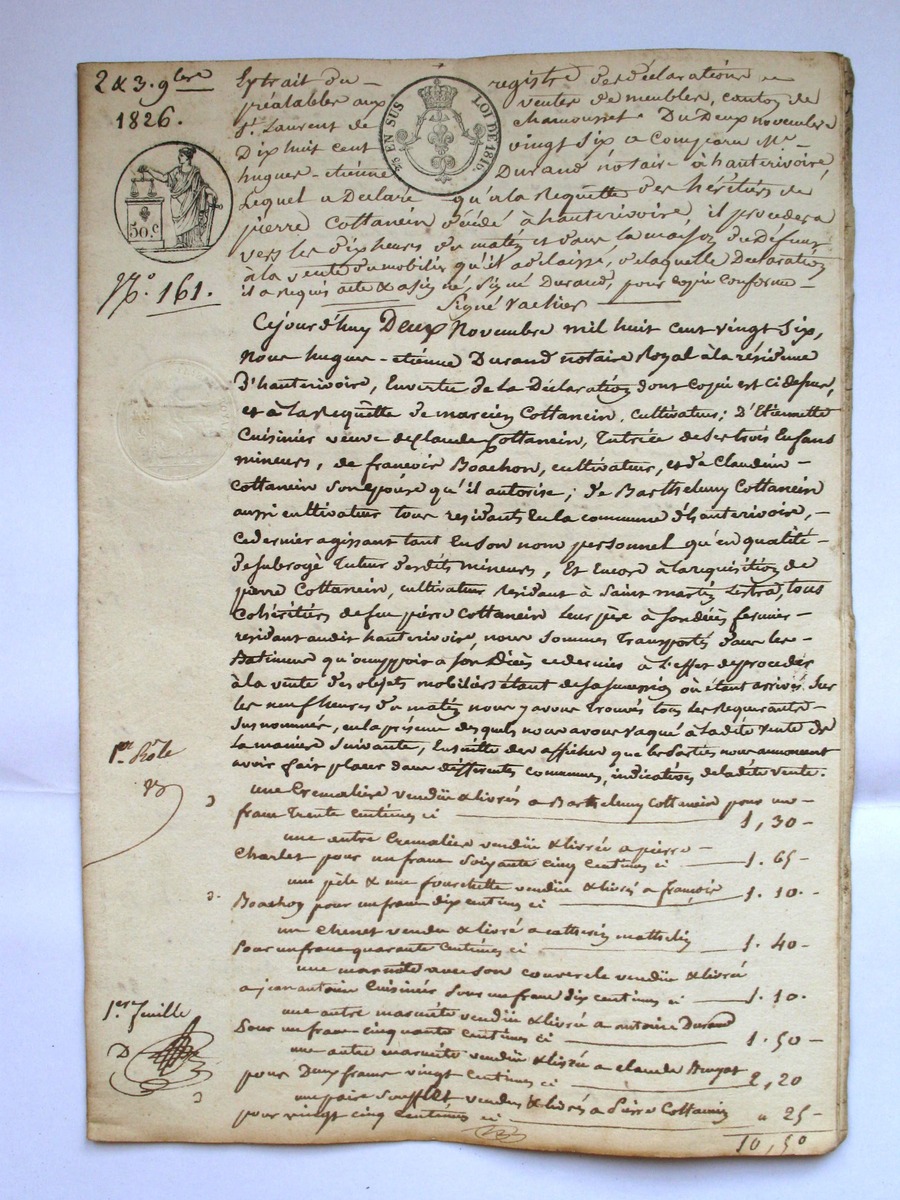 2 & 3. 9bre
1826.
50 c
N.o 161.
25 EN SUS LOI DE 1816.
Extrait du registre des déclarations
préalables aux ventes de meubles, canton de
St. Laurent de Chamousset. Du Deux novembre
Dix huit cent vingt Six a Comparu Me.
hugues-etiénne Durand nótaire à hauterivoire,
Lequel a Déclaré qu'a la Requette des héritiérs de
pierre Cottancin décédé à hauterivoire, il procédera
vers les dix heures du matin et dans la maison du Défunt
à la vente du mobiliér qu'il a delaissé, de laquelle Declaration
il a requis acte & a signé, Signé Durand, pour copie conforme
Signé Vachier
Cejourd'huy Deux Novembre mil huit cent vingt Six,
Nous hugues-etiénne Durand notaire Royal à la résidence
d'hauterivoire, En vertu de la Déclaration dont Copie est ci dessus,
et à la requêtte de marcien Cottancin, cultivateur; d'Etiennette
Cuisinier veuve de Claude Cottancin, tutrice de ses trois Enfans
mineurs, de francois Boachon, cultivateur, et de Claudine
Cottancin Son epouse qu'il autorise; de Barthelemy Cottancin
aussi cultivateur tous residants En la commune d'hauterivoire,
ce dernier agissant tant En Son nom personnel qu'en qualité
de subrogé tuteur desdits mineurs, Et Encore à la requisition de
pierre Cottancin, cultivateur Residant à Saint martin Lestra, tous
Cohéritiérs de feu pierre Cottancin leur père à Son décès fermier
residant audit hauterivoire, nous Sommes transportés dans les
Batimens qu'occuppoit à Son décès ce dernier à l'effet de proceder
à la vente des objets mobiliérs étant de sa succession où étant arrivés Sur
les neuf heures du matin nous y avons trouvés tous les Requerants
Susnommés, en la présence desquels nous avons vaqué à la dite vente de
la maniere Suivante, Ensuitte des affiches que les parties nous annoncent
avoir fait placer dans différentes communes, indication de ladite vente.
1er Rôle
une Cremaliere vendüe & livrée a Barthelemy Cottancin pour un
franc trente Centimes ci 1,30
une autre Cremaliere vendüe & livrée a pierre
Charlet pour un franc Soixante cinq Centimes ci 1.65
une pèle & une fourchette vendüe & livrés a françois
Boachon pour un franc dix centimes ci 1.10
un Chenet vendu & livré a catherin
pour un franc quarante Centimes ci 1.40
une marmite avec son couvercle vendüe & livrée
a jean antoine Cuisinier pour un franc dix centimes ci 1.10.
1er feuille
D
une autre marmite vendüe & livrée a antoine Durand
pour un franc cinquante centimes ci 1.50
une autre marmite vendüe & livrée a claude
pour Deux francs vingt Centimes ci 2,20
une paire Soufflet vendus & livrés a Pierre Cottancin
pour vingt cinq Centimes ci " 25
10,50